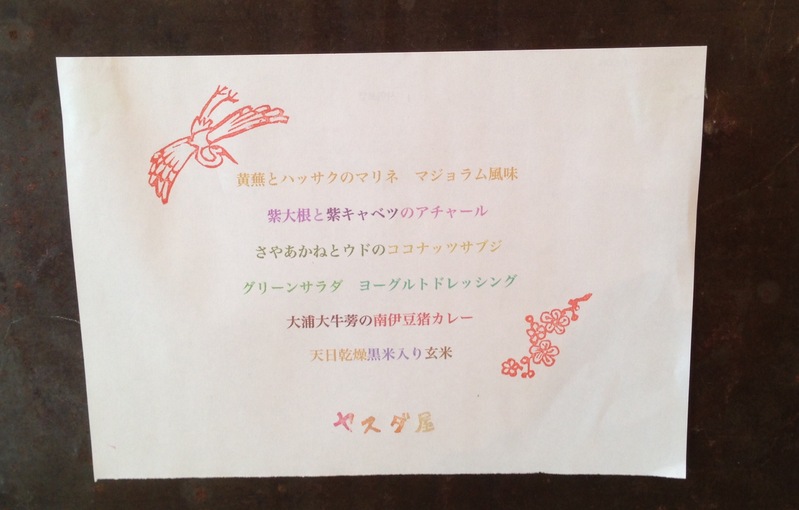 黄蕪とハッサクのマリネ　マジョラム風味
紫大根と紫キャベツのアチャール
さやあかねとウドのココナッツサブジ
グリーンサラダ　ヨーグルトドレッシング
大浦大牛蒡の南伊豆猪カレー
天日乾燥黒米入り玄米
ヤスダ屋